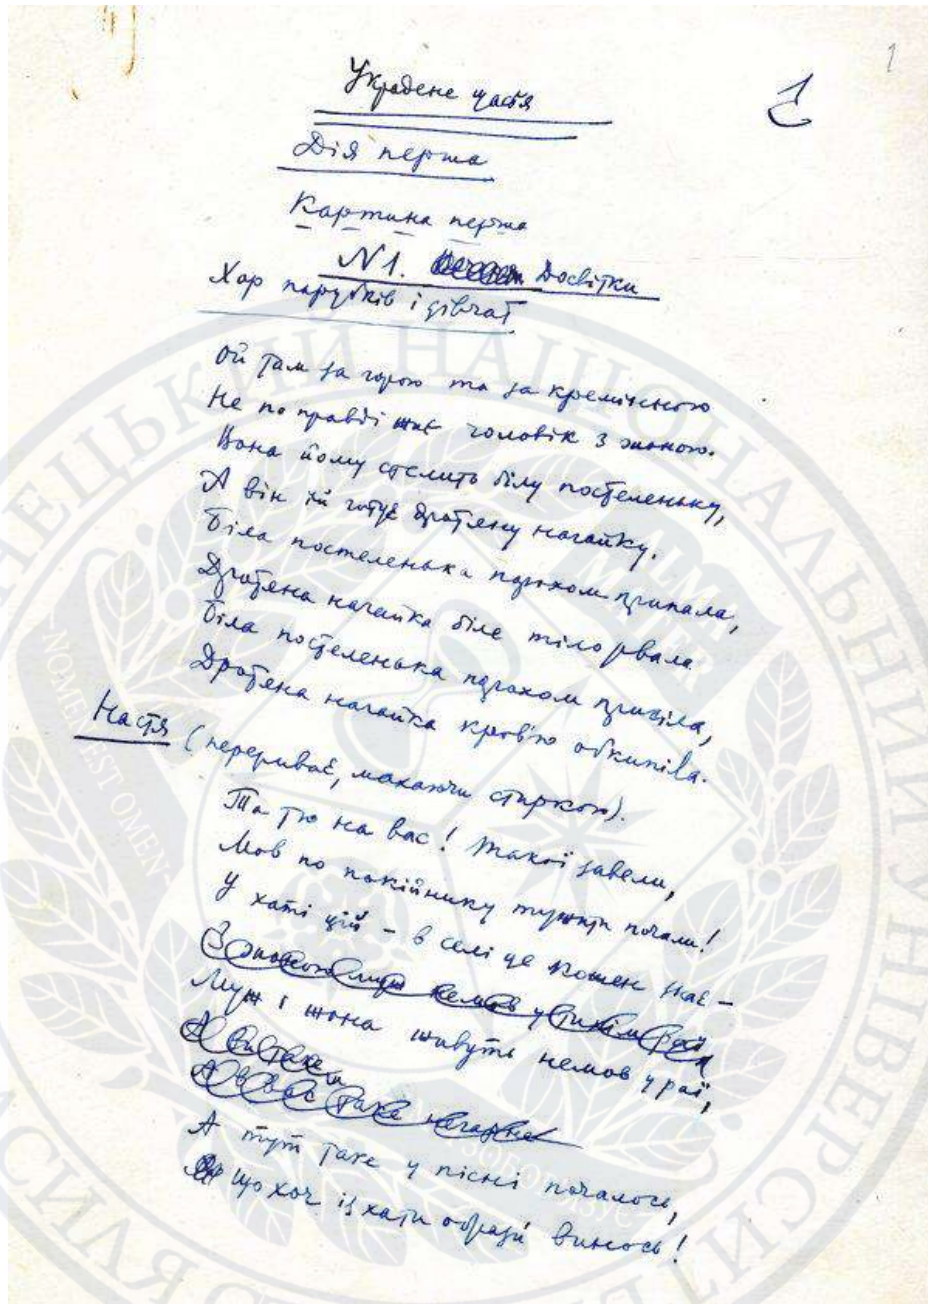 1
Украдене щастя
Дія перша
Картина перша
N 1. Досвітки
Хор парубків і дівчат
Ой там за горою та за кремінною
Не по правді жив чоловік з жоною.
Вона йому стелить білу постеленьку,
А він їй готує дротяну нагайку.
Біла постеленька порохом припала,
Дротяна нагайка біле тіло рвала
Біла постеленька порохом присіла,
Дротяна нагайка кров'ю обкипіла.
Настя (перериває, махаючи стиркою).
Та тю на вас! Такої завели,
Мов по покійнику тужити почали!
У хаті цій – в селі це кожен знає –
З жоною муж немов у тихім раї
Муж і жона живуть немов у раї,
А ви таке
А в вас таке негарне
А тут таке у пісні почалось,
Що хоч із хати образи винось!
НАЦІОНАЛЬНИЙ УНІВЕРСИТЕТ
ALMA MATER
NOMEN EST OMEN